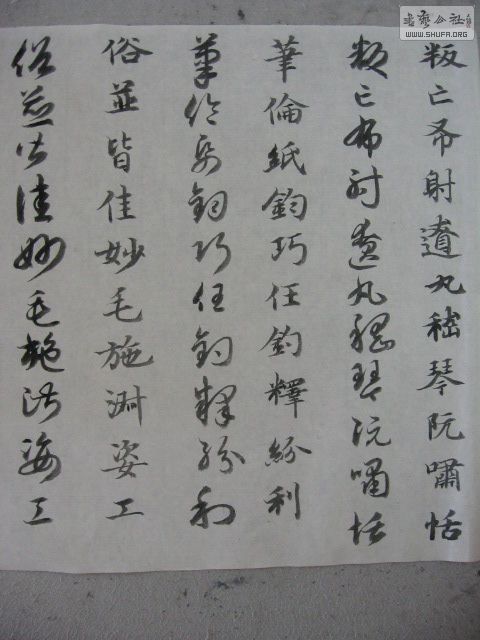 叛亡布射遼丸嵇琴阮嘯恬
叛亡布射遼丸嵇琴阮嘯恬
筆倫紙鈞巧任釣釋紛利
筆倫紙鈞巧任釣釋紛利
俗並皆佳妙毛施淑姿工
俗並皆佳妙毛施淑姿工
WWW.SHUFA.ORG